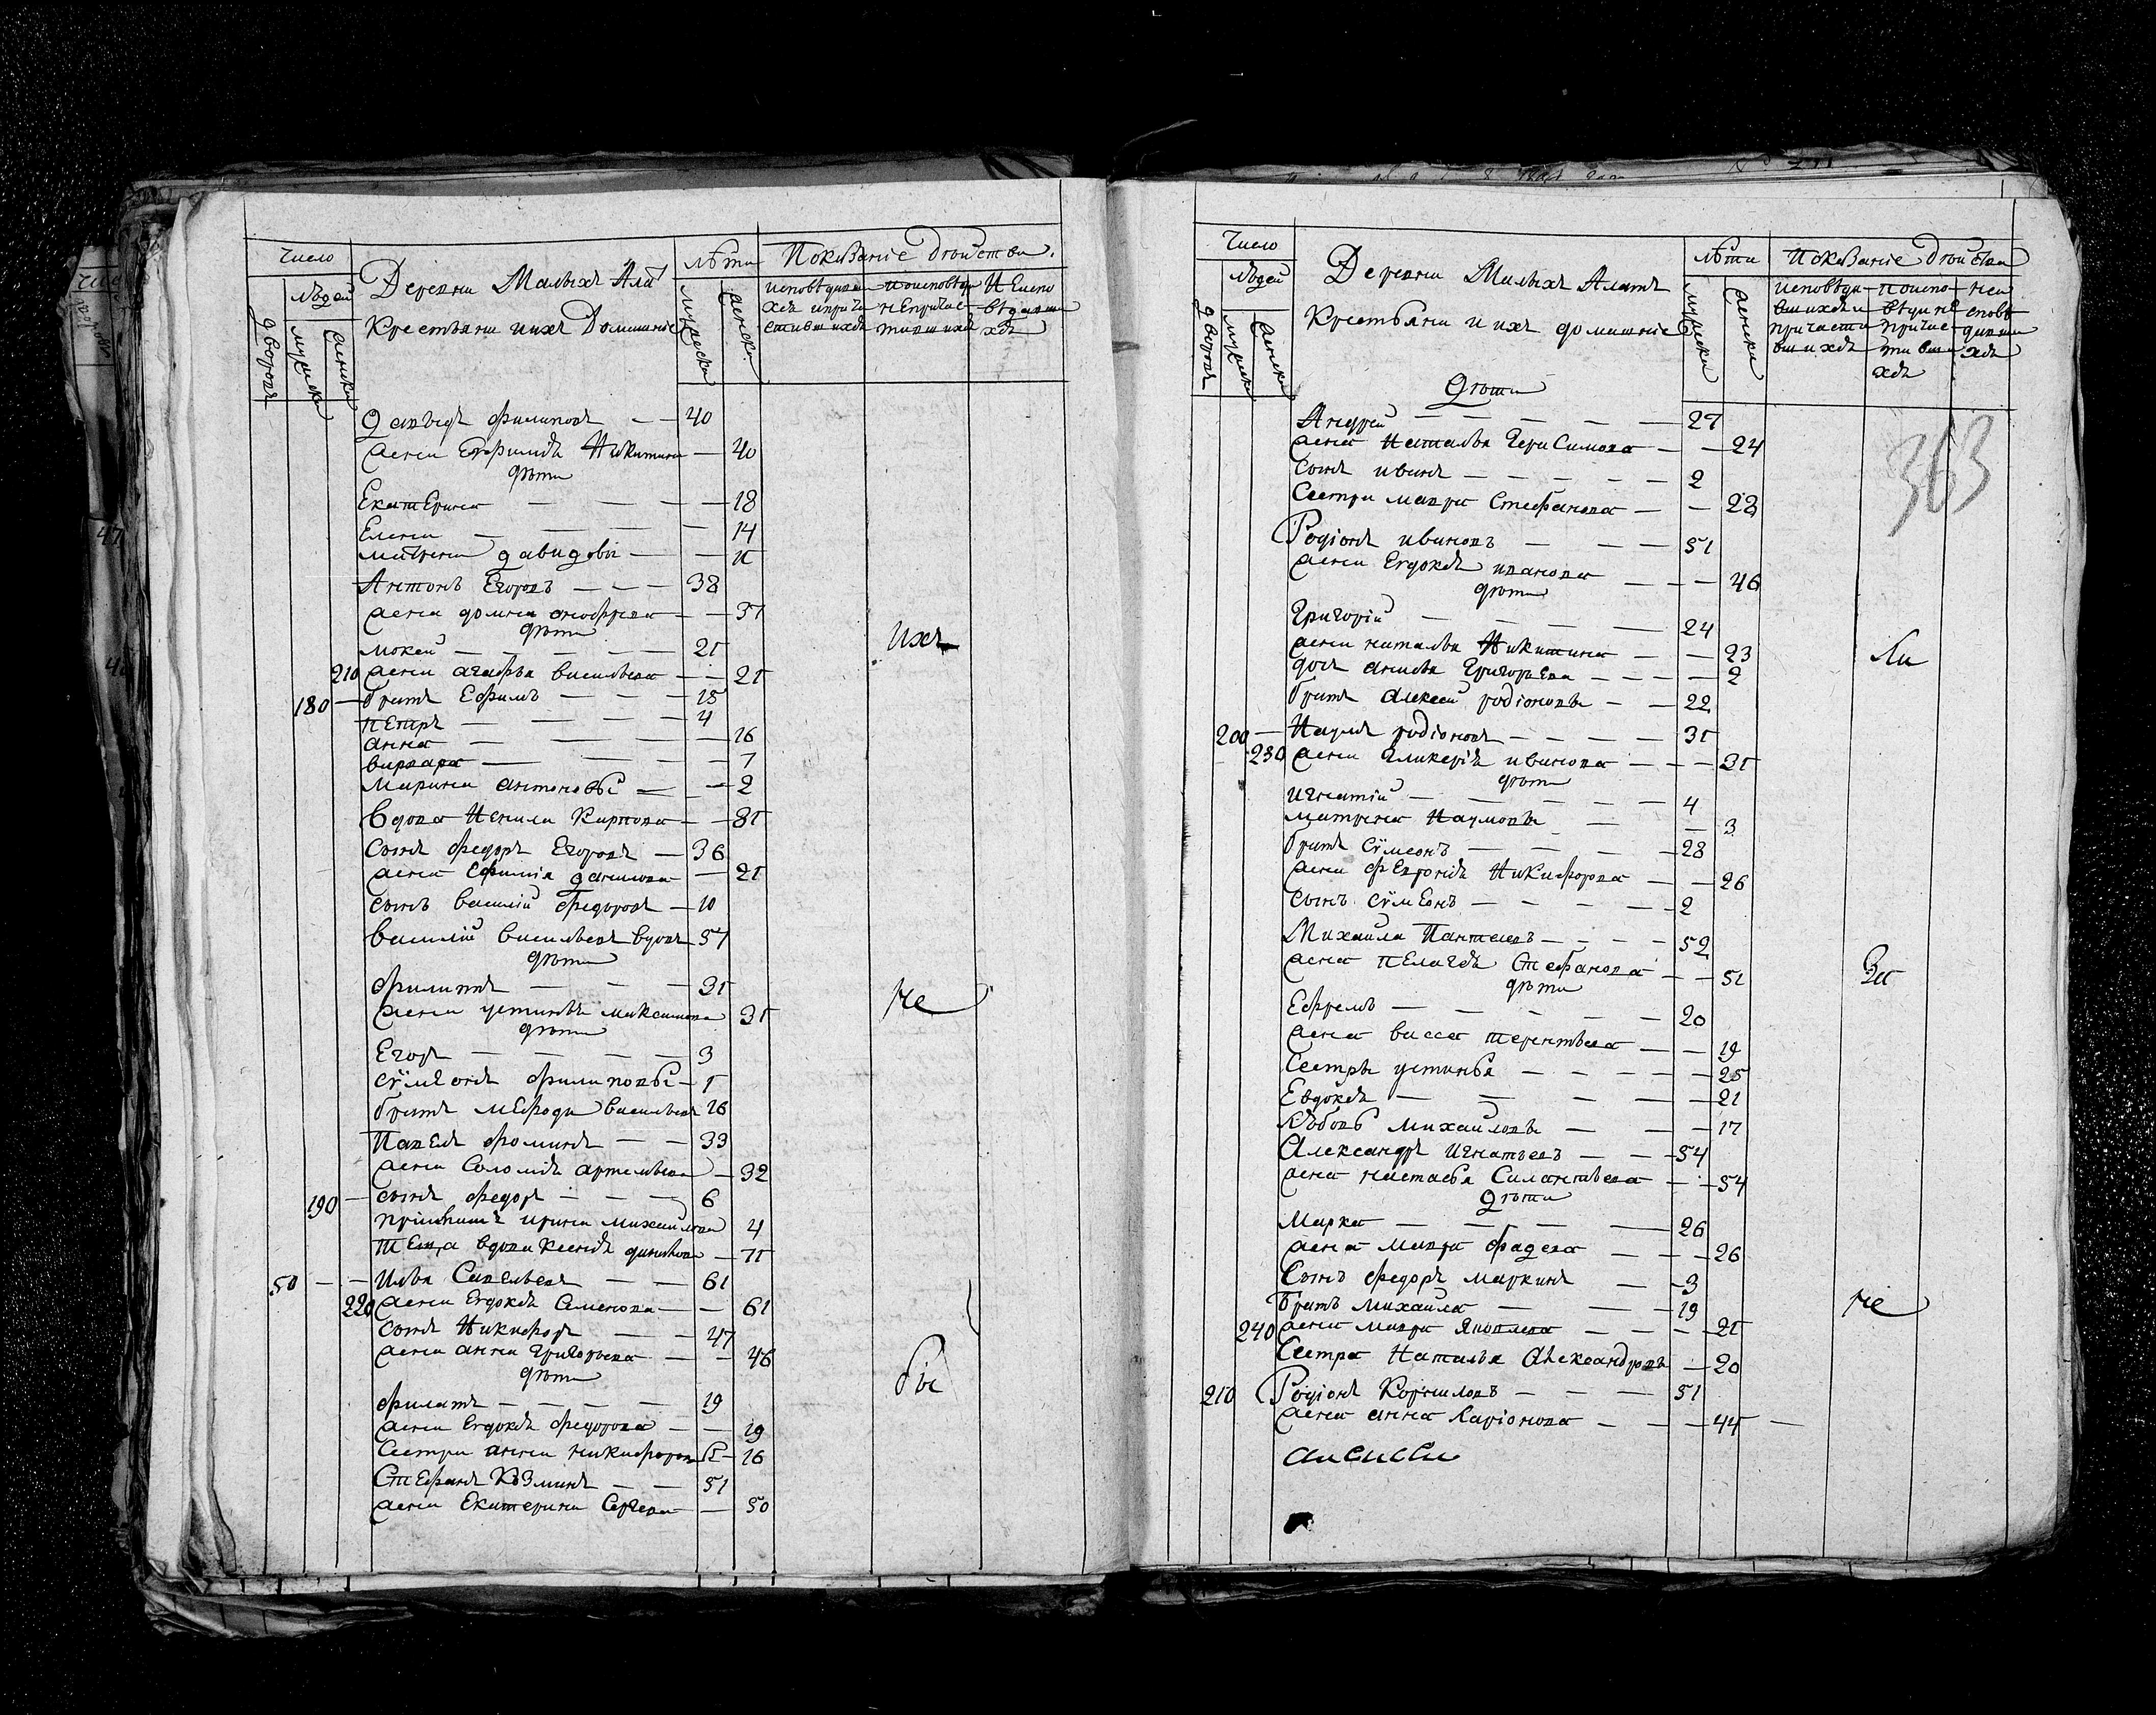 Число
Людей
дворовъ
мужеска
женска
Деревни Малыхъ Алат
Крестьяни ихъ Домашнiе
лѣта
мужеска
женска
Показанiе действа.
исповѣдыва
поисповѣда
Неиспо
хсѧ ипрiча
непричас
вѣдавши
ставшихсѧ
тившихсѧ
хсѧ
Давыдъ филиповъ — — 40
Жена Евфимiѧ Никитина — 40
дѣти
Екатерина — — — — 18
Елена — — — — 14
матрена давидовы — — 11
Антонъ Егоровъ — — — 38
Жена домна анофрева — — 37
дѣти
мокей — — — — — 21
210 жена агафьѧ васильева — — 21
180 — братъ Ефимъ — — — 15
петръ — — — — 4
анна — — — — — 16
варвара — — — — 7
марина антоновы — — — 2
Вдова Ненила Карпова — — 81
Сынъ федоръ Егоровъ — 36
жена Ефимiя данилова — 21
сынъ василiй федоровъ — 10
василiй васильевъ вдовъ — 57
дѣти
филиппъ — — — 31
жена устиньѧ максимова 31
дѣти
Егоръ — — — — 3
сѵмеонъ филиповы — 1
братъ мефоди васильевъ 26
Павелъ фоминъ — — 33
жена Соломiѧ артемьева — 32
190 — сынъ федоръ — — — 6
прiимышъ ирина михаилова 4
Теща вдова ксенiѧ данилова — 71
50 — — Илья Савельевъ — — 61
220 жена Евдокѧ Семенова — — 61
сынъ Никифоръ — — 47
жена анна григорьева — — 46
дѣти
филатъ — — — — 19
жена Евдокѧ федорова — — 19
Сестра анна никифорова — 16
Стефанъ Козминъ — — 51
жена Екатерина Сергева — 50
ихъ
не
бы
Число
Людей
дворовъ
мужеска
женска
Деревни Малыхъ Алатъ
Крестьяни и ихъ домашнiе
лѣта
мужеска
женска
показанiе действа
исповѣда
поиспо
неи
вшихсѧ и
вѣда не
сповѣ
причасти
причас
давши
вшихсѧ
ти вши
хсѧ
хсѧ
363
Дѣти
Андрей — — — — — 27
жена Наталья Герасимова — — 24
сынъ иванъ — — — — — 2
Сестра мавра Стефанова — — 22
Родiонъ ивановъ — — — 51
жена Евдокѧ иванова — — — 46
дѣти
Григорiй — — — — 24
жена наталья Никитина — — 23
дочь анисья Григорьева — — — — 2
братъ алексей родiоновы — — 22
200 — Наумъ родiоновъ — — — — 31
230 жена Гликерiѧ иванова — — — 31
дѣти
игнатiй — — — — — 4
матрена Наумовы — — 3
братъ сѵмеонъ — — — — 28
жена февронiѧ Никифорова — — 26
сынъ сѵмеонъ — — — — 2
Михаила Пантелевъ — — — — 52
жена пелагеѧ Стефанова — — 51
дѣти
Ефремъ — — — — — 20
жена васса терентьева — — 19
Сестры устинья — — — — — 25
Евдокѧ — — — — — 21
Любовь михаиловы — — — 17
Александръ Игнатьевъ — — — 54
жена настасья Силантьева — — 54
Дѣти
Марка — — — — 26
жена мавра фадева — — — 26
Сынъ федоръ маркинъ — — 3
Братъ михаила — — — 19
240 жена мавра Яковлева — — — — 21
Сестра Наталья Александровы — 20
210 Родiонъ Корниловъ — — — 51
жена анна Ларiонова — — — 44 —
ли
за
не